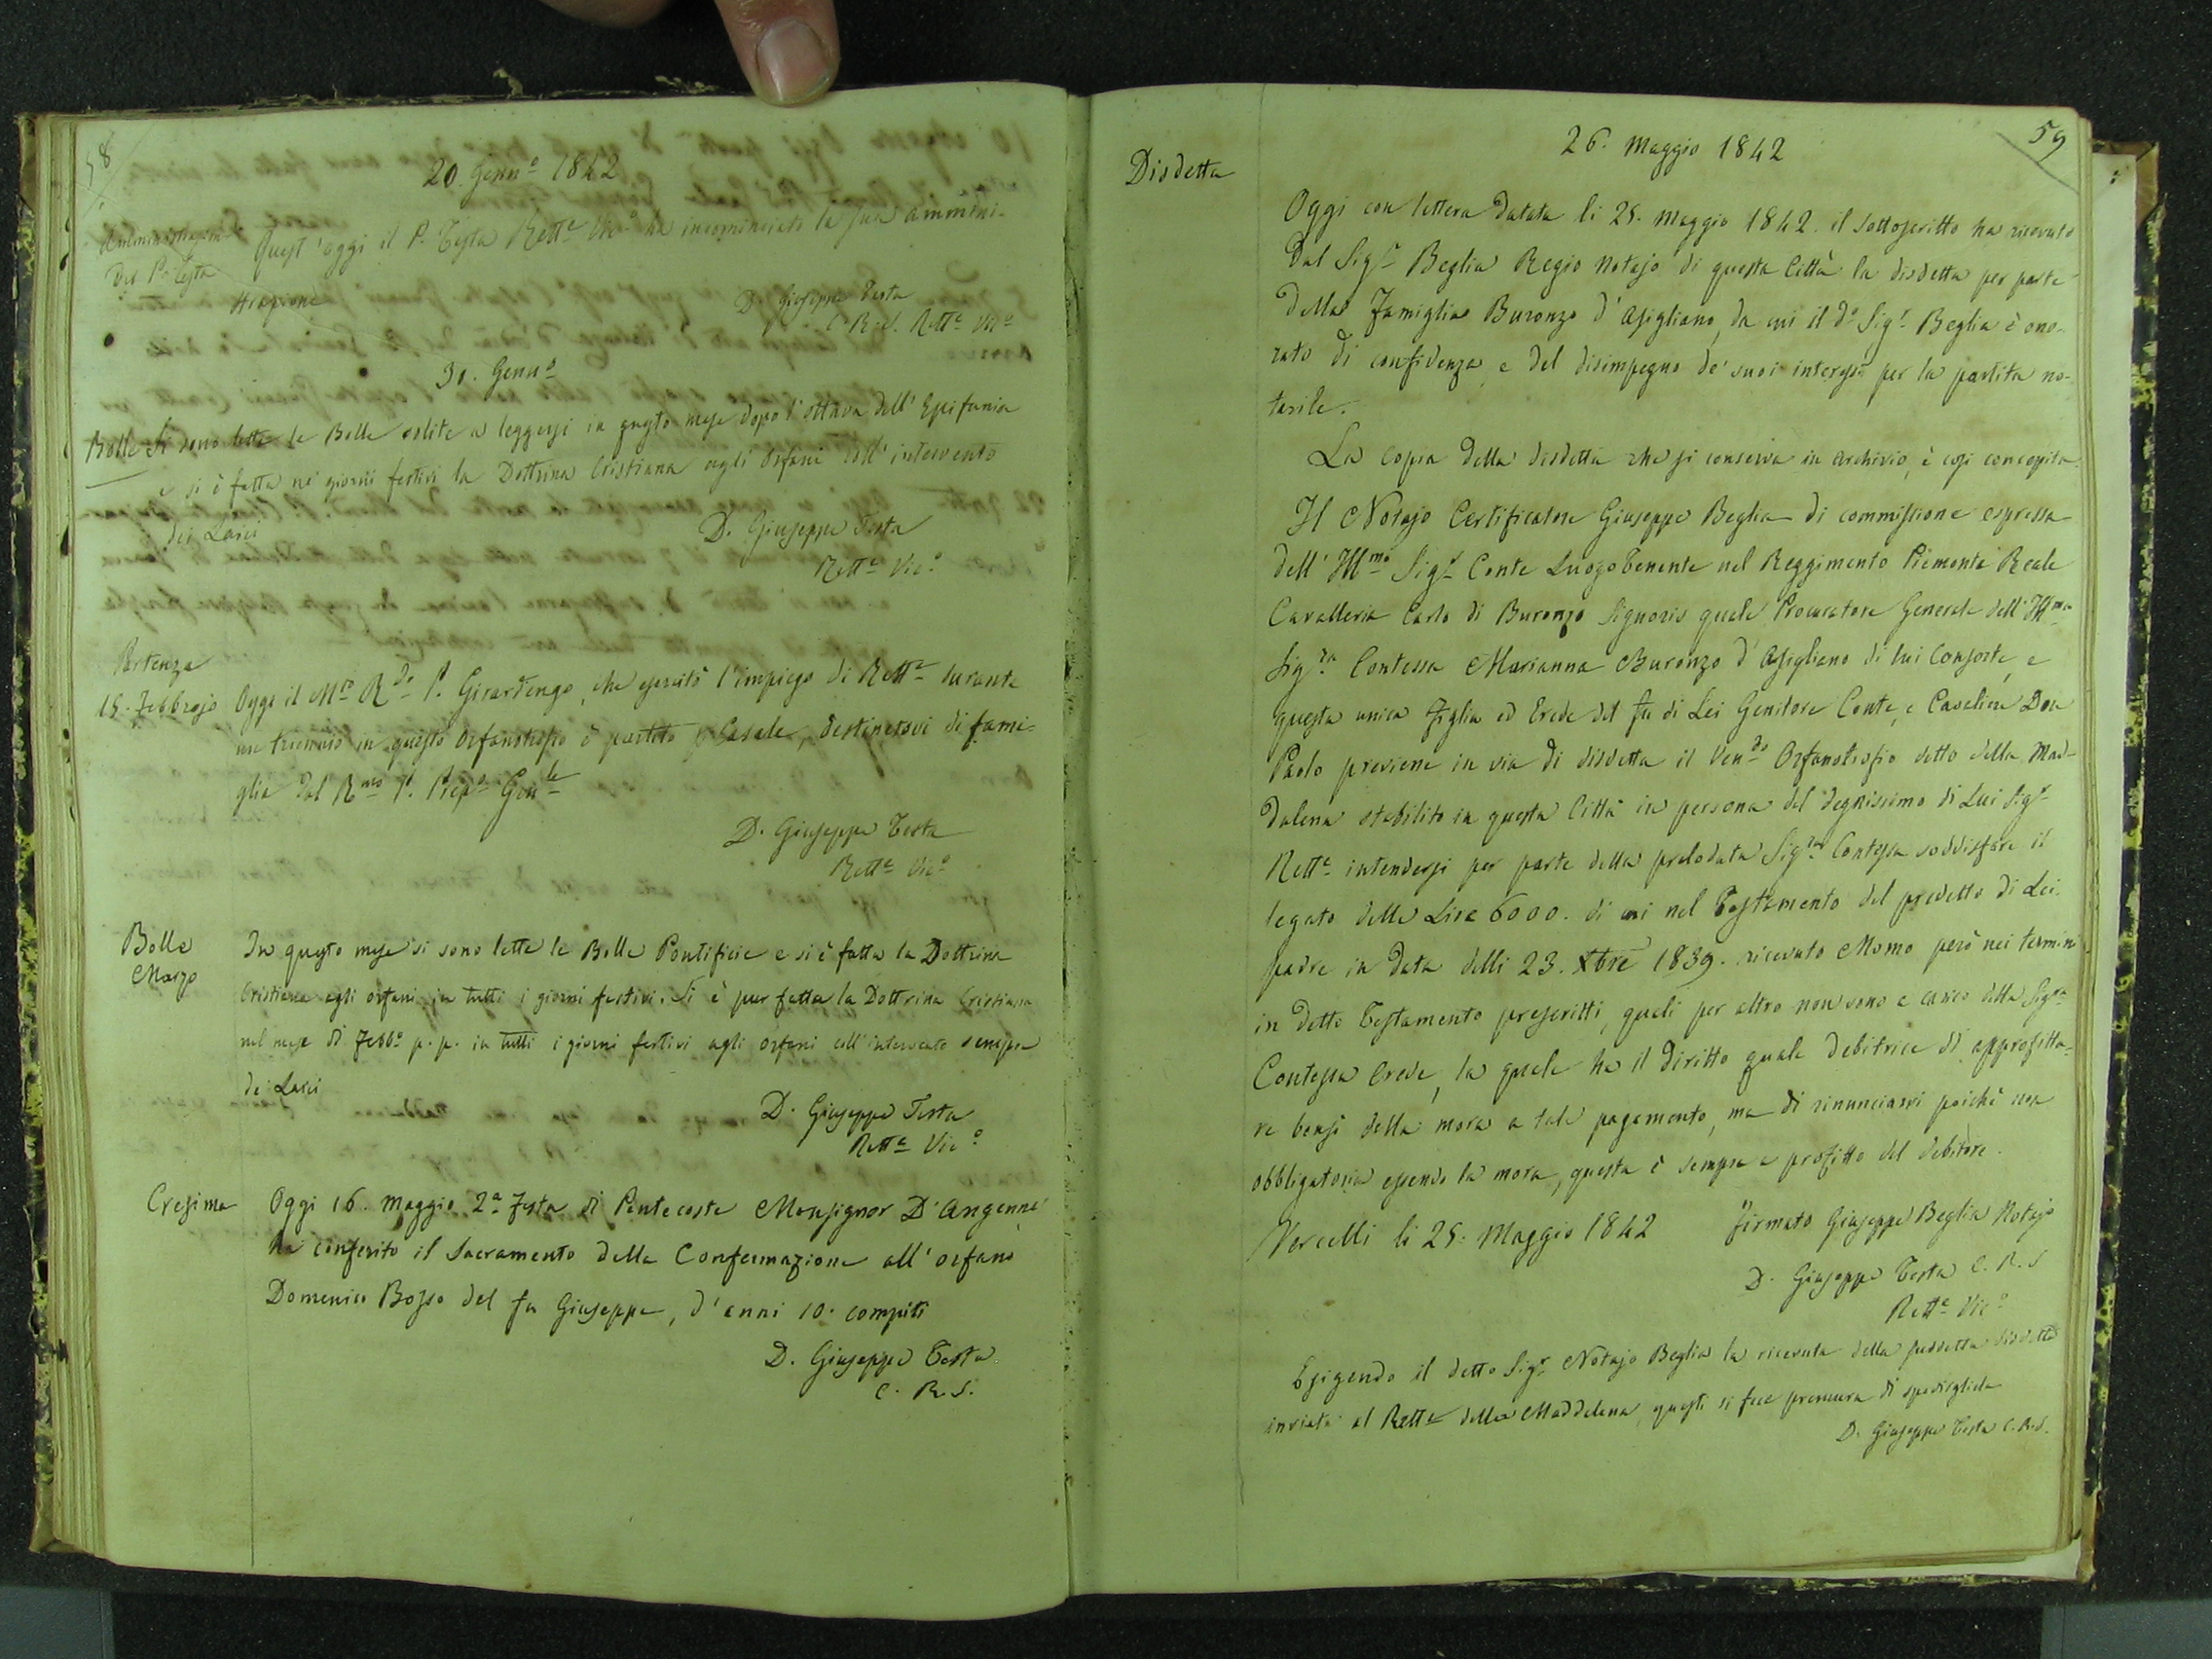 58
20. Genn.o 1842
Amministrazione
del P. Testa
Quest'oggi il P. Testa Rett.e Vic.o ha incominciato la sua ammini-
strazione
D. Giuseppe Testa
C. R. S. Rett.e Vic.o
30. Genn.o
Bolle
Si sono lette le Bolle solite a leggersi in questo mese dopo l'ottava dell'Epifania
e si è fatta ne' giorni festivi la Dottrina Cristiana agli Orfani coll'intervento
dei Laici
D. Giuseppe Testa
Rett.e Vic.o
Partenza
15. Febbrajo
Oggi il M.to R.do P. Girardengo, che esercitò l'impiego di Rett.e durante
un triennio in questo Orfanotrofio è partito p. Casale, destinatovi di fami-
glia dal R.mo P. Prep.o Gen.le
D. Giuseppe Testa
Rett.e Vic.o
Bolle
Marzo
In questo mese si sono lette le Bolle Pontificie e si è fatta la Dottrina
Cristiana agli orfani in tutti i giorni festivi. Si è pur fatta la Dottrina Cristiana
nel mese di Febb.o p. p. in tutti i giorni festivi agli orfani coll'intervento sempre
de' Laici
D. Giuseppe Testa
Rett.e Vic.o
Cresima
Oggi 16. Maggio 2.a Festa di Pentecoste Monsignor D'Angennes
ha conferito il Sacramento della Confermazione all'orfano
Domenico Bozzo del fu Giuseppe, d'anni 10. compiti
D. Giuseppe Testa
C. R. S.
59
26. Maggio 1842
Disdetta
Oggi con lettera datata li 25. Maggio 1842. il sottoscritto ha ricevuto
dal Sig.r Beglia Regio Notajo di questa Città la disdetta per parte
della Famiglia Buronzo d'Asigliano, da cui il d.o Sig.r Beglia è ono-
rato di confidenza, e del disimpegno de' suoi interessi per la partita no-
tarile.
La copia della disdetta che si conserva in archivio, è così concepita.
Il Notajo Certificatore Giuseppe Beglia di commissione espressa
dell'Ill.mo Sig.r Conte Luogotenente nel Reggimento Piemonte Reale
Cavalleria Carlo di Buronzo Signoris quale Procuratore Generale dell'Ill.ma
Sig.ra Contessa Marianna Buronzo d'Asigliano di lui Consorte, e
questa unica figlia ed Erede del fu di Lei Genitore Conte, e Cavaliere Don
Paolo previene in via di disdetta il Ven.do Orfanotrofio detto della Mad-
dalena stabilito in questa Città in persona del degnissimo di Lui Sig.r
Rett.e intendersi per parte della prelodata Sig.ra Contessa soddisfare il
legato delle Lire 6000. di cui nel Testamento del predetto di Lei
padre in data delli 23. Xbre 1839. ricevuto Momo però nei termini
in detto Testamento prescritti, quali per altro non sono a carico della Sig.ra
Contessa Erede, la quale ha il diritto quale debitrice di approfitta-
re bensì della mora a tale pagamento, ma di rinunciarvi poichè non
obbligatoria essendo la mora, questa è sempre a profitto del debitore.
Vercelli li 25. Maggio 1842 Firmato Giuseppe Beglia Notajo
D. Giuseppe Testa C. R. S
Rett.e Vic.o
Esigendo il detto Sig.r Notajo Beglia la ricevuta della suddetta disdetta
inviata al Rett.e della Maddalena, questi si fece premura di spedirgliela
D. Giuseppe Testa C. R. S.